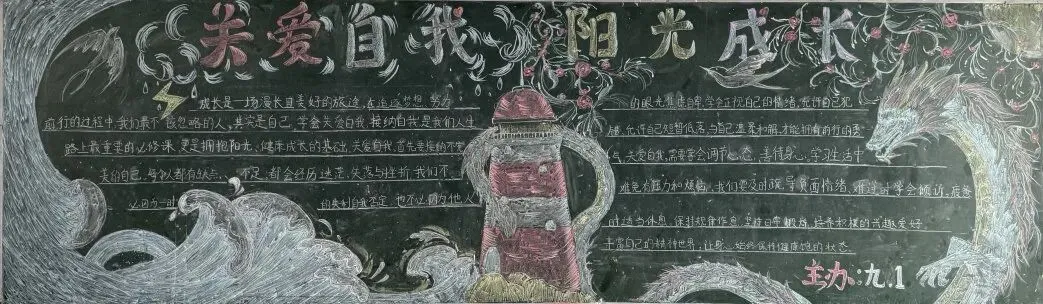 关爱自我 阳光成长
成长是一场漫长且美好的旅途，在追逐梦想、努力
前行的过程中，我们最不该忽略的人，其实是自己。学会关爱自我、接纳自我是我们人生
路上最重要的必修课，更是拥抱阳光、健康成长的基础。关爱自我，首先要接纳不完
美的自己，每个人都有缺点、不足，都会经历迷茫、失落与挫折，我们不
必因为一时的失利自我否定，也不必因为他人
的眼光焦虑自卑，学会正视自己的情绪，允许自己犯
错，允许自己短暂低落，与自己温柔和解，才能拥有前行的勇
气。关爱自我，需要学会调节心态、善待身心，学习生活中
难免有压力和烦恼，我们要及时疏导负面情绪，难过时学会倾诉，疲惫
时适当休息，保持规律作息，坚持日常锻炼，培养积极的兴趣爱好
丰富自己的精神世界，让身心始终保持健康饱的状态
主办：九.1